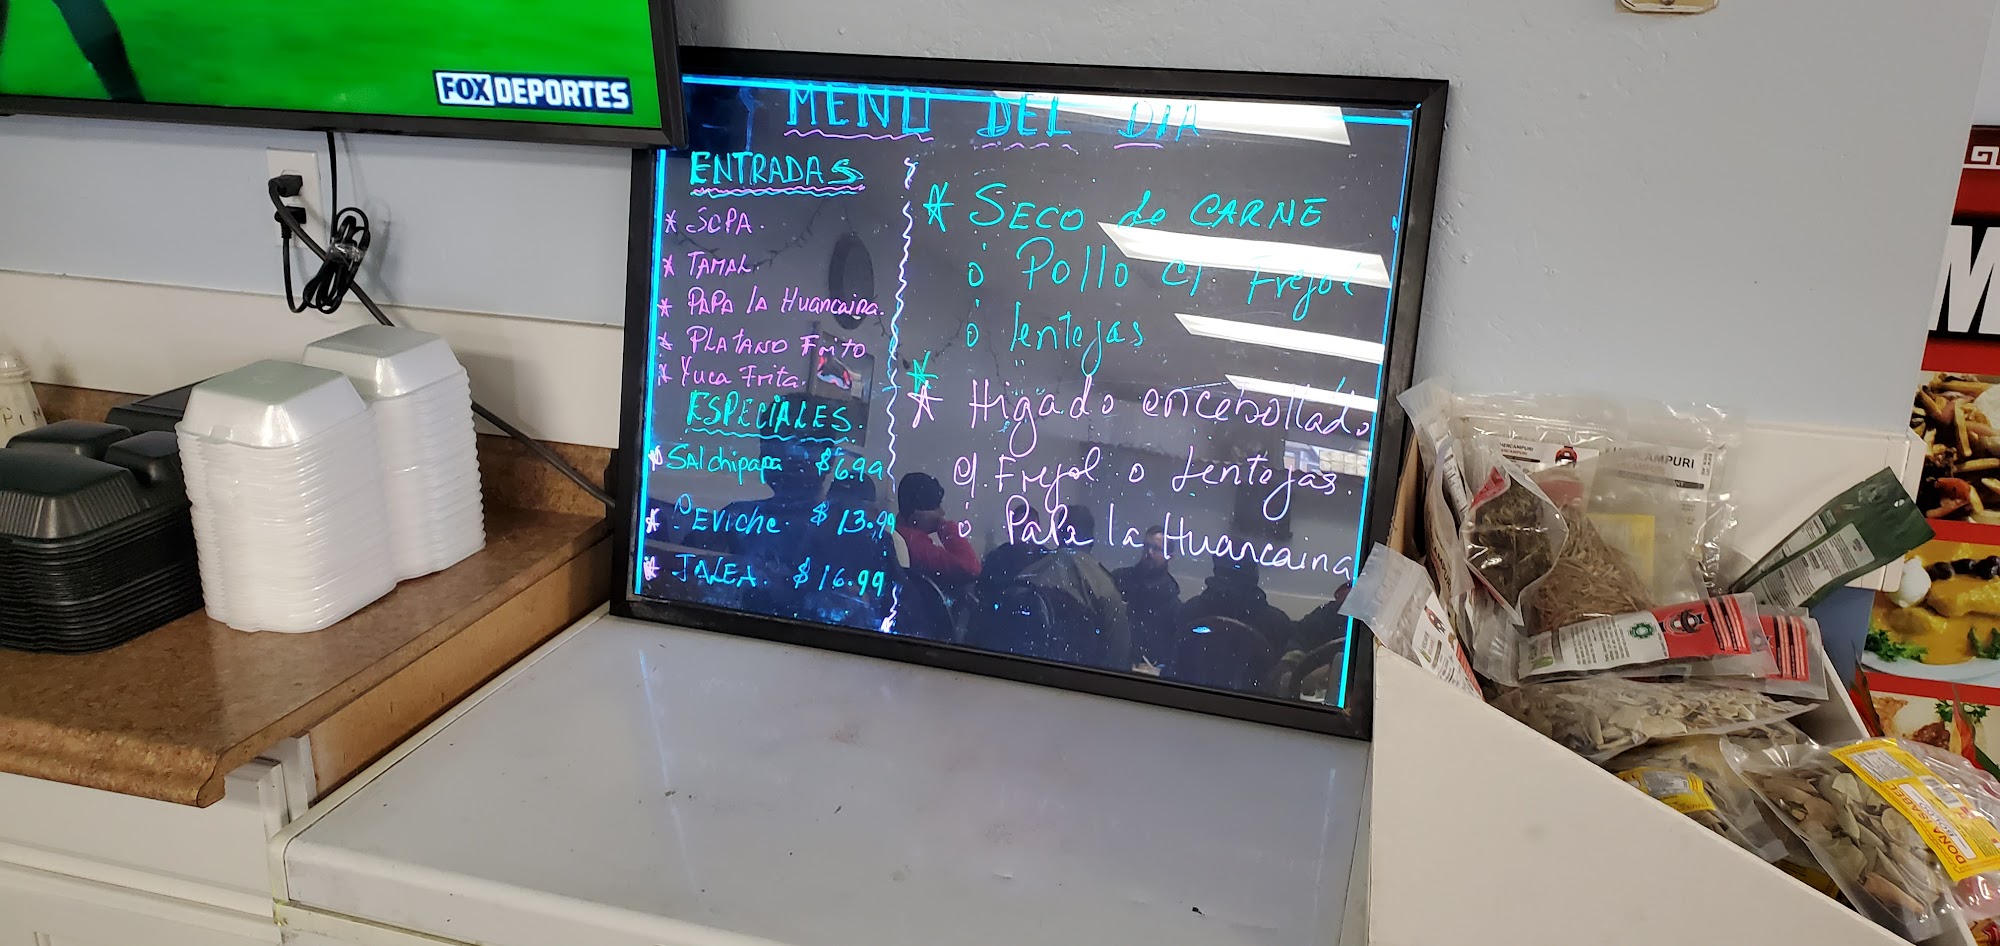 FOX DEPORTES
MENU DEL DIA
ENTRADAS
* SOPA.
* TAMAL.
* PAPA la Huancaina.
* PLATANO Frito
* Yuca Frita.
ESPECIALES.
* SAlchipapa $6.99
* CEViche. $13.99
* JALEA. $16.99
* SECO de CARNE
o Pollo c/ Frejol
o lentejas
*
* Higado encebollado
c/ Frejol o Lentejas.
o PaPa la Huancaina
HERCAMPURI
DOÑA ISABEL
M